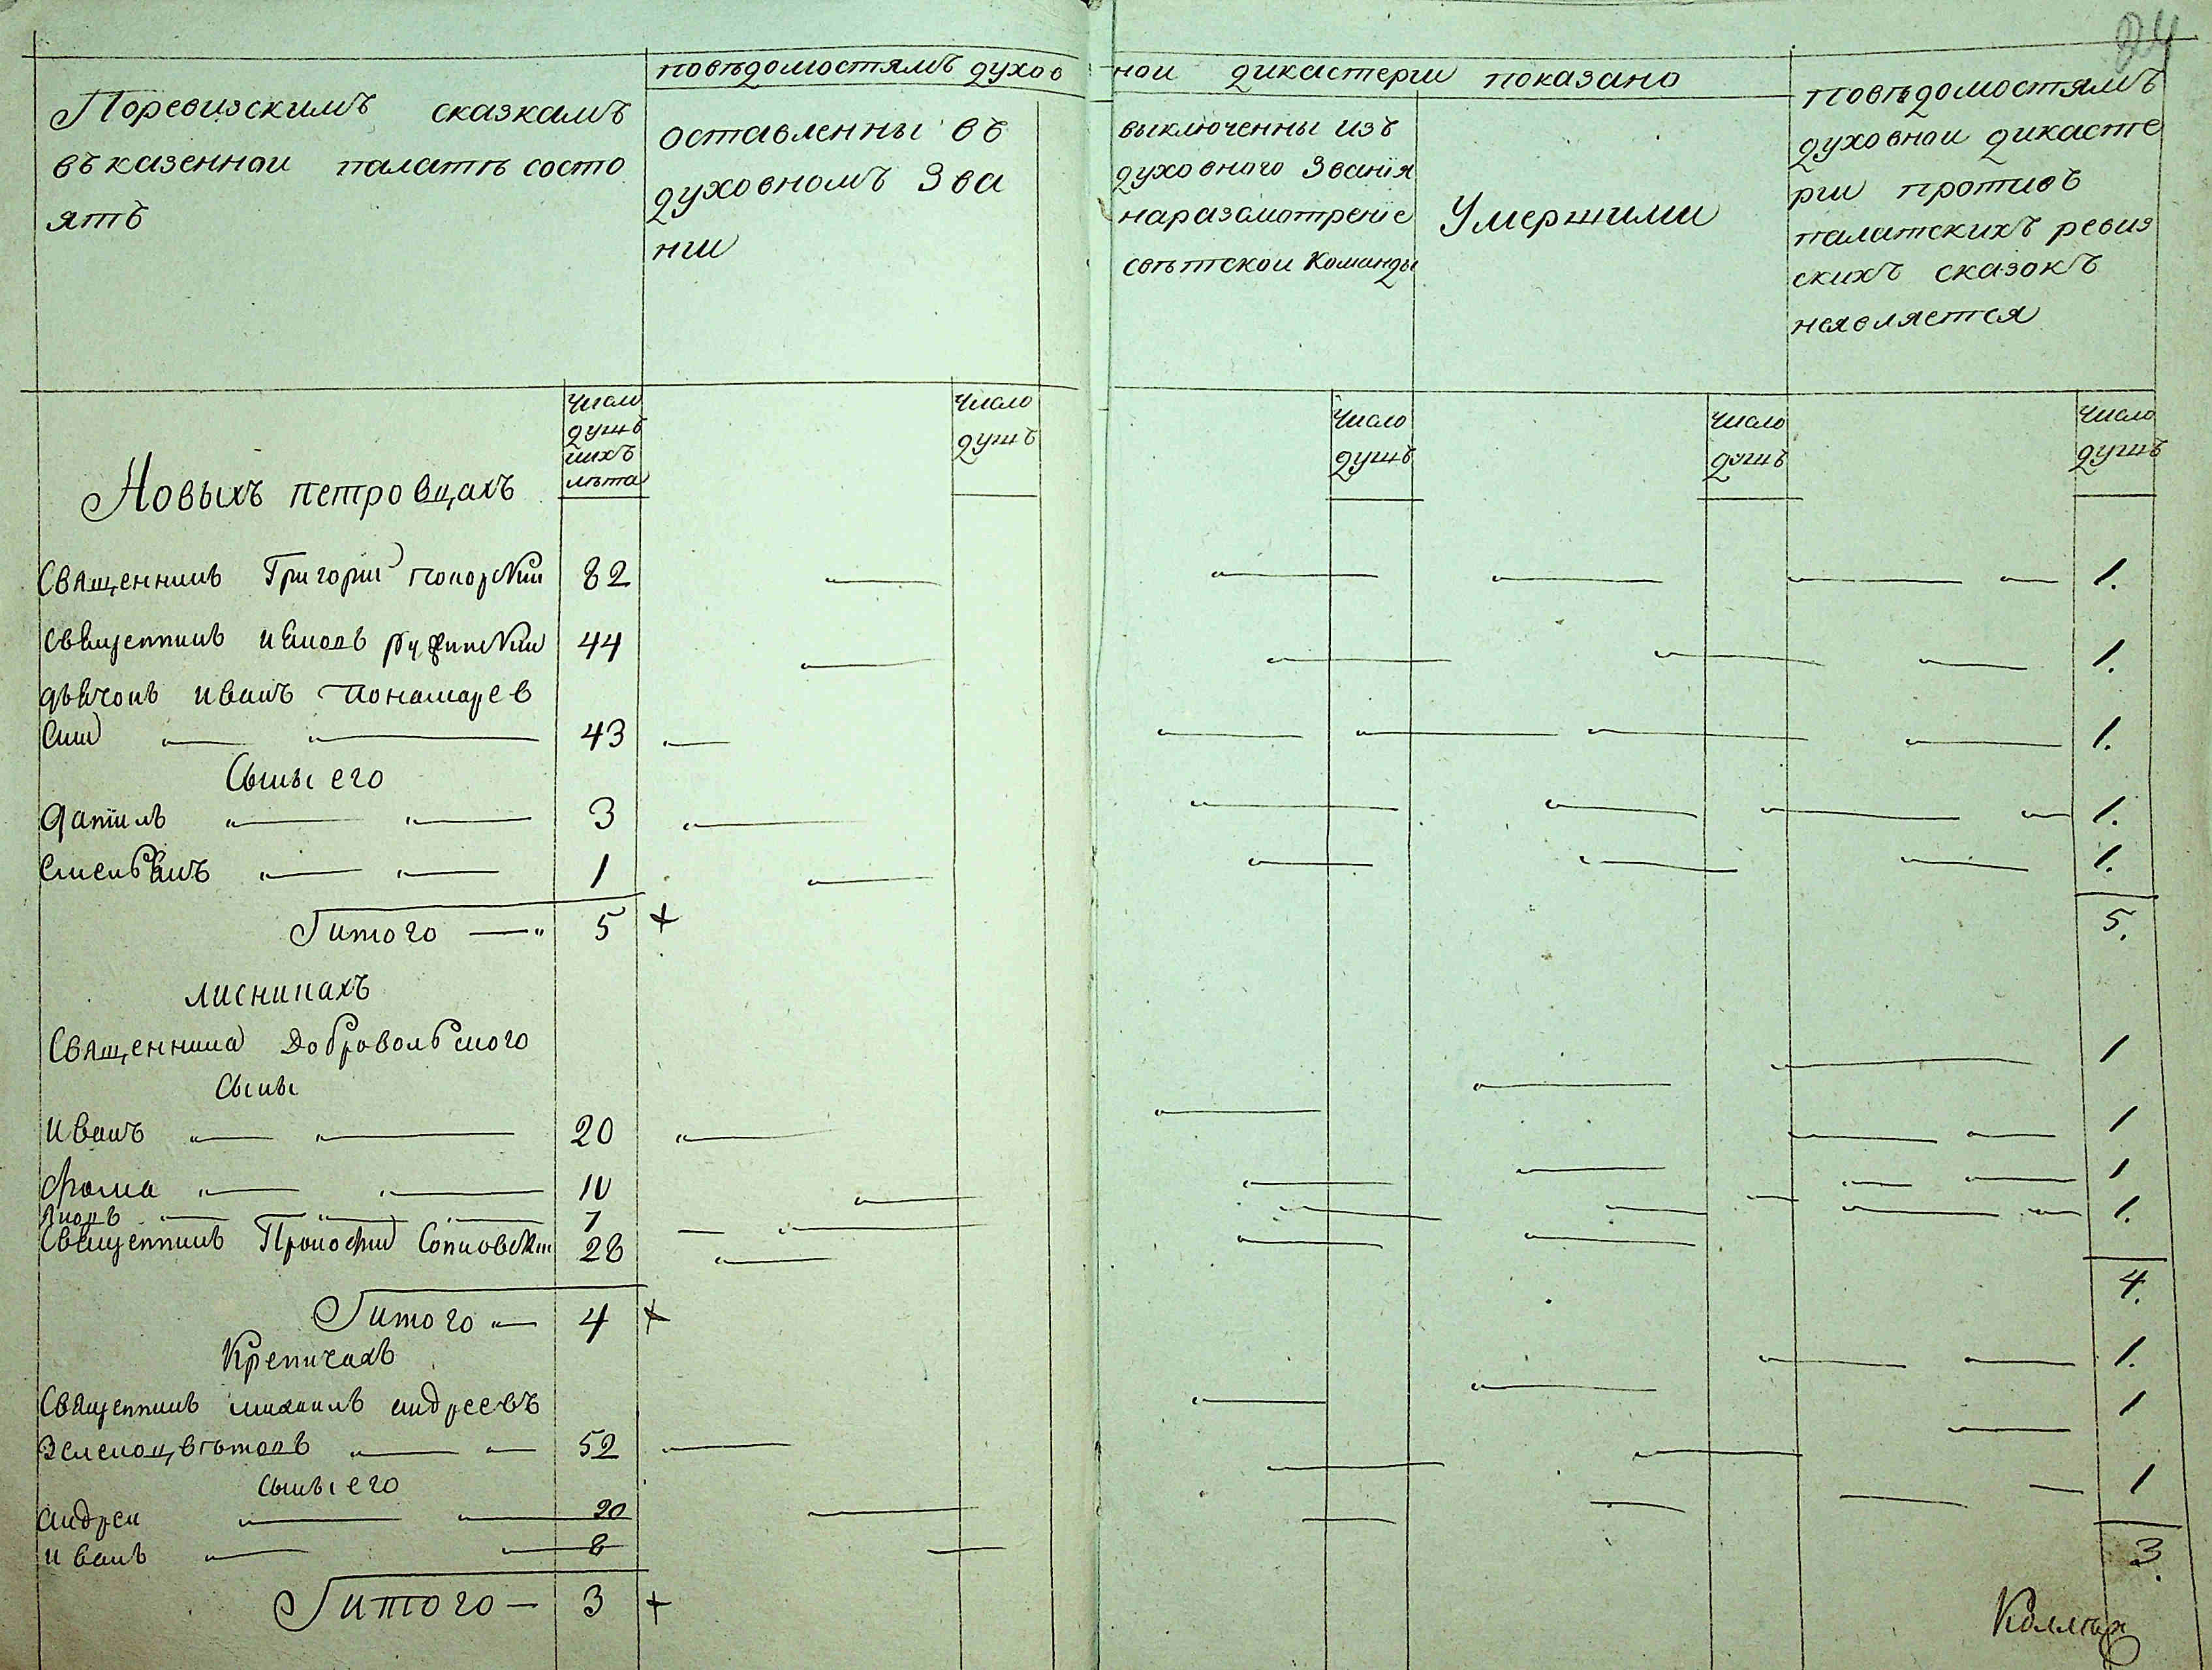 24
Поревизскимъ сказкамъ
въ казеннои палатѣ состо
ятъ
повѣдомостямъ духов
нои дикастерии показано
оставленны въ
духовномъ Зва
нии
выключенны изъ
духовного Званїя
наразсмотренїе
свѣтской Команды
Умершими
повѣдомостямъ
духовнои дикасте
рии противъ
палатскихъ ревиз
скихъ сказокъ
неявляется
Число
душъ
ихъ
лѣта
Число
душъ
Число
душъ
Число
душъ
Число
душъ
Новыхъ петровцахъ
Священникъ Григории 82 1.
Священникъ 44 1.
дьячокъ иванъ понамарев
скии 43 1.
Сыны его
данїилъ 3 1.
Емельянъ 1 1.
Итого 5 + 5.
лиснипахъ
Священника Добровольского 1
Сыны
иванъ 20 1
Фома 10 1
Яковъ 7 1.
Священникъ Прокофии 28
Итого 4 + 4.
Крепичахъ 1.
Священникъ михаилъ андреевъ 1
Зеленоцвѣтовъ 52
сыны его 1
андреи 20
иванъ 8 3.
Итого 3 +